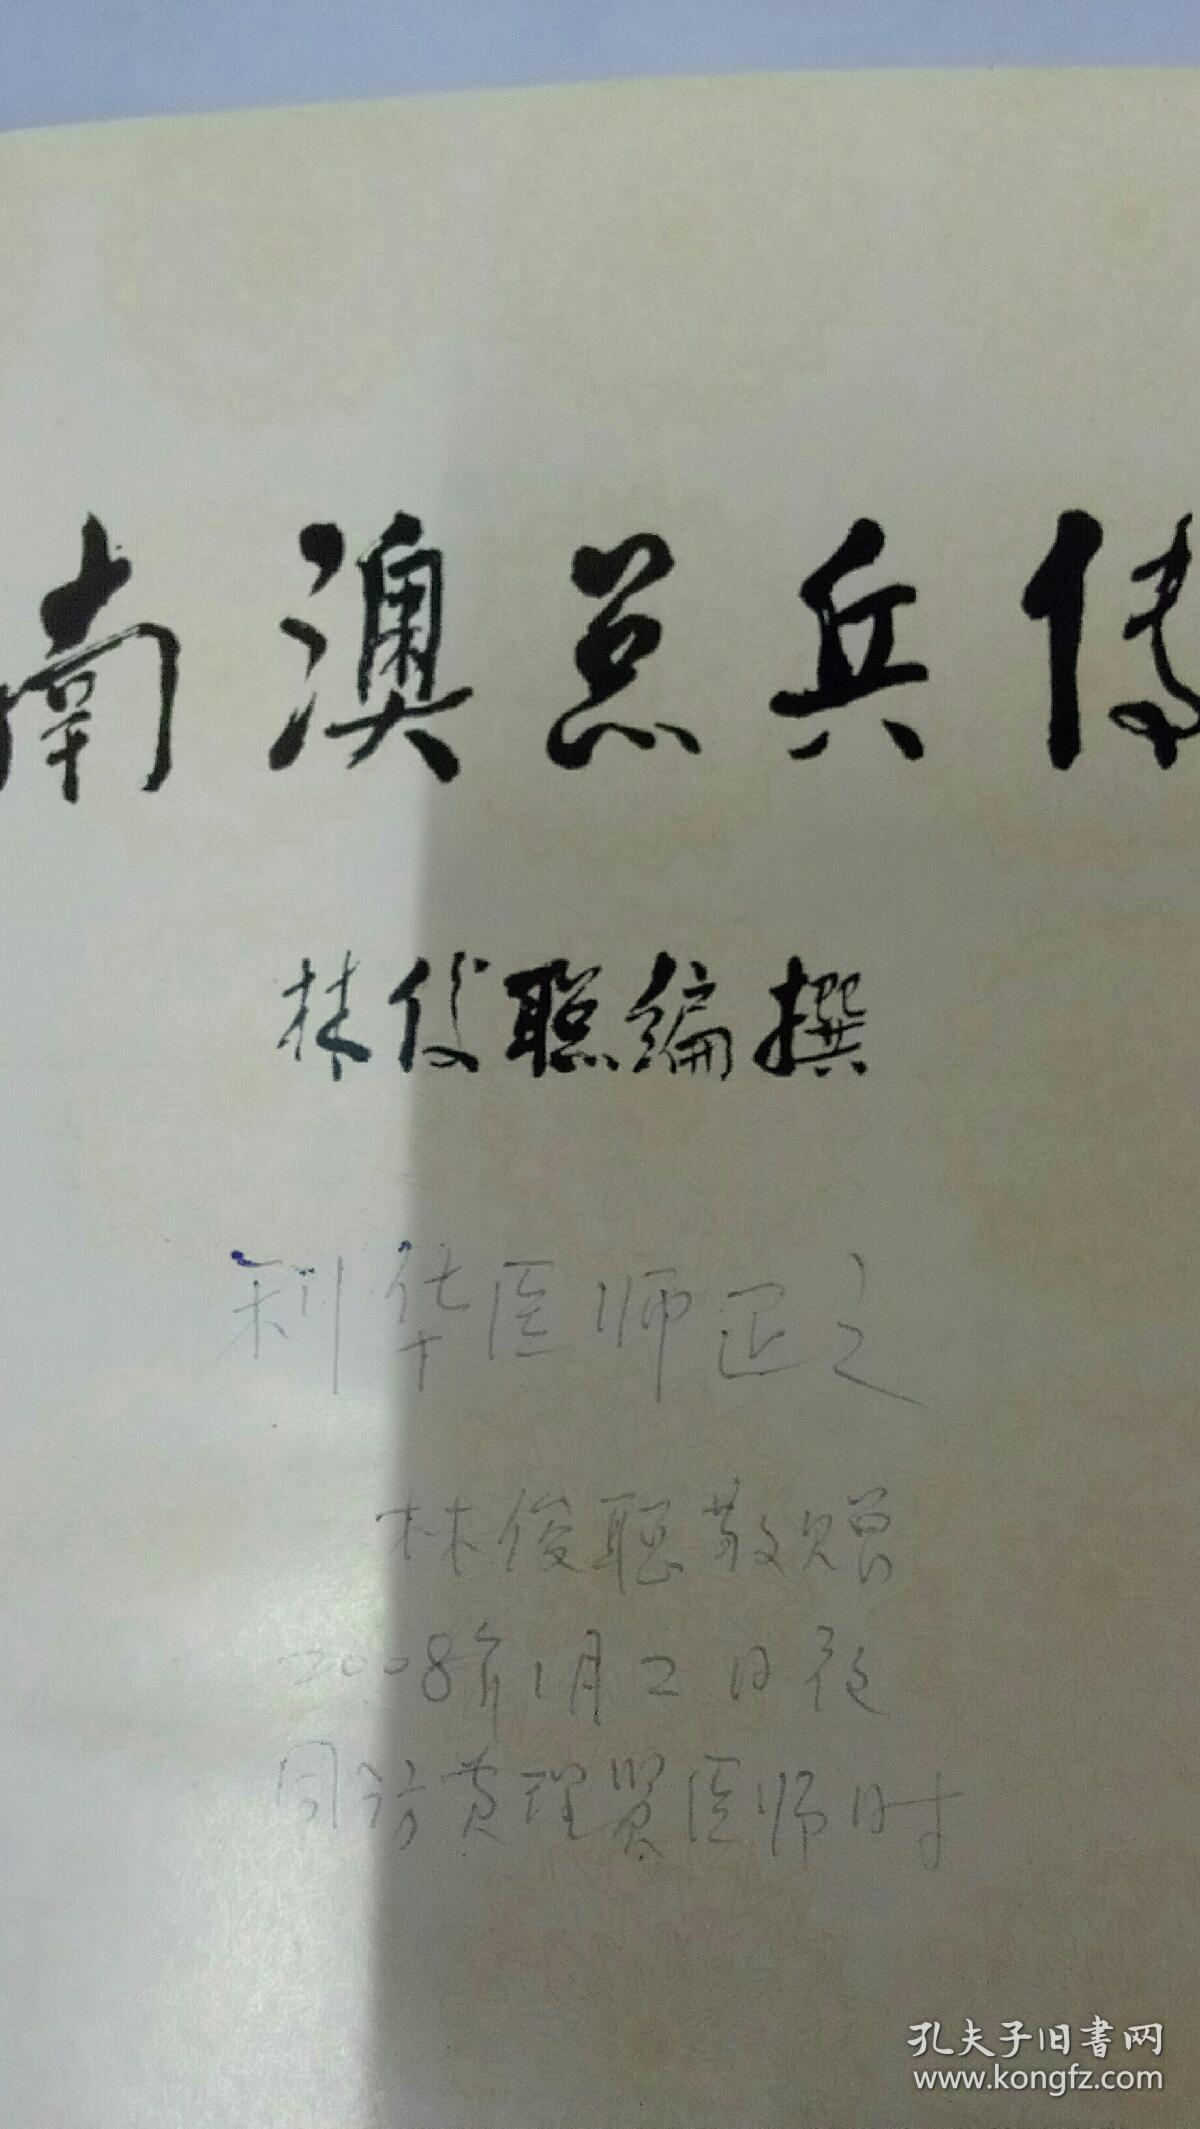 南澳总兵传
林俊聪编撰
利华医师正之
林俊聪敬赠
2008年1月2日夜
同访黄理贤医师时
孔夫子旧書网
www.kongfz.com